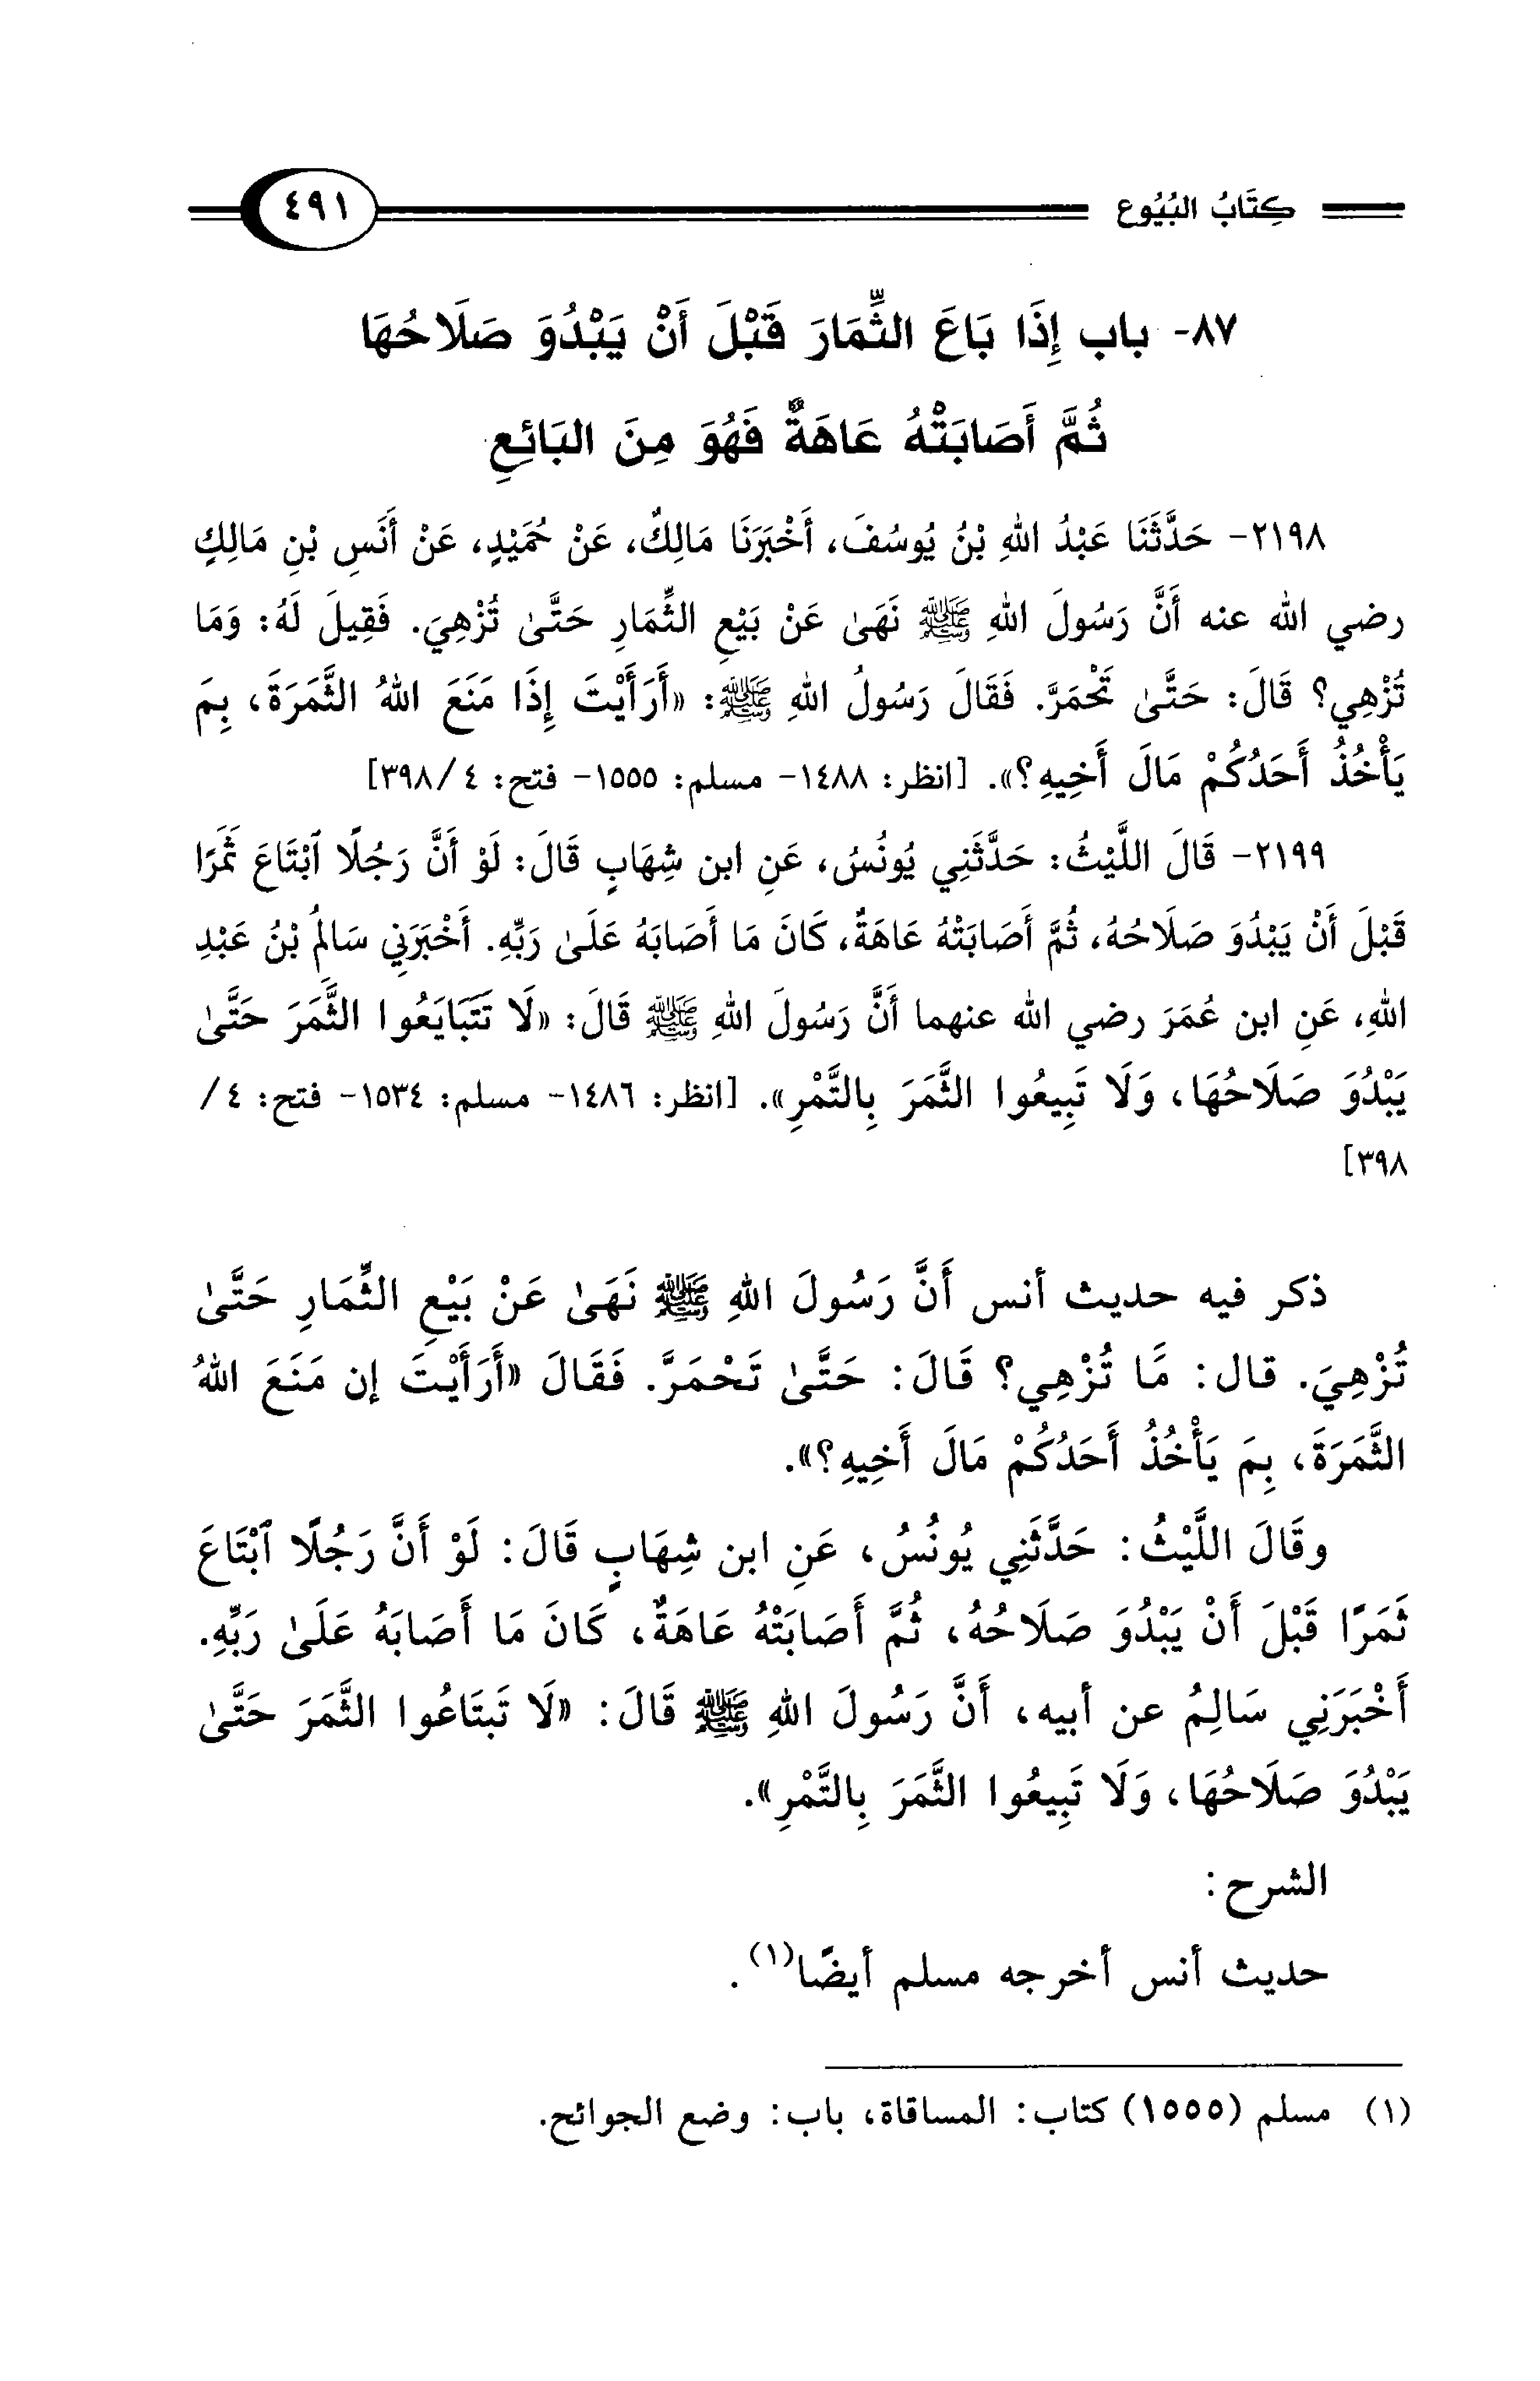 كِتَابُ البُيُوع
٤٩١
٨٧- باب إِذَا بَاعَ الثِّمَارَ قَبْلَ أَنْ يَبْدُوَ صَلَاحُهَا
ثُمَّ أَصَابَتْهُ عَاهَةٌ فَهُوَ مِنَ البَائِعِ
٢١٩٨- حَدَّثَنَا عَبْدُ اللهِ بْنُ يُوسُفَ، أَخْبَرَنَا مَالِكٌ، عَنْ حُمَيْدٍ، عَنْ أَنَسِ بْنِ مَالِكٍ
رضي الله عنه أَنَّ رَسُولَ اللهِ ﷺ نَهَىٰ عَنْ بَيْعِ الثِّمَارِ حَتَّىٰ تُزْهِيَ. فَقِيلَ لَهُ: وَمَا
تُزْهِي؟ قَالَ: حَتَّىٰ تَحْمَرَّ. فَقَالَ رَسُولُ اللهِ ﷺ: «أَرَأَيْتَ إِذَا مَنَعَ اللهُ الثَّمَرَةَ، بِمَ
يَأْخُذُ أَحَدُكُمْ مَالَ أَخِيهِ؟». [انظر: ١٤٨٨- مسلم: ١٥٥٥- فتح: ٤/ ٣٩٨]
٢١٩٩- قَالَ اللَّيْثُ: حَدَّثَنِي يُونُسُ، عَنِ ابن شِهَابٍ قَالَ: لَوْ أَنَّ رَجُلًا ٱبْتَاعَ ثَمَرًا
قَبْلَ أَنْ يَبْدُوَ صَلَاحُهُ، ثُمَّ أَصَابَتْهُ عَاهَةٌ، كَانَ مَا أَصَابَهُ عَلَىٰ رَبِّهِ. أَخْبَرَنِي سَالِمُ بْنُ عَبْدِ
اللهِ، عَنِ ابن عُمَرَ رضي الله عنهما أَنَّ رَسُولَ اللهِ ﷺ قَالَ: «لَا تَتَبَايَعُوا الثَّمَرَ حَتَّىٰ
يَبْدُوَ صَلَاحُهَا، وَلَا تَبِيعُوا الثَّمَرَ بِالتَّمْرِ». [انظر: ١٤٨٦- مسلم: ١٥٣٤- فتح: ٤/
٣٩٨]
ذكر فيه حديث أنس أَنَّ رَسُولَ اللهِ ﷺ نَهَىٰ عَنْ بَيْعِ الثِّمَارِ حَتَّىٰ
تُزْهِيَ. قال: مَا تُزْهِي؟ قَالَ: حَتَّىٰ تَحْمَرَّ. فَقَالَ «أَرَأَيْتَ إن مَنَعَ اللهُ
الثَّمَرَةَ، بِمَ يَأْخُذُ أَحَدُكُمْ مَالَ أَخِيهِ؟».
وقَالَ اللَّيْثُ: حَدَّثَنِي يُونُسُ، عَنِ ابن شِهَابٍ قَالَ: لَوْ أَنَّ رَجُلًا ٱبْتَاعَ
ثَمَرًا قَبْلَ أَنْ يَبْدُوَ صَلَاحُهُ، ثُمَّ أَصَابَتْهُ عَاهَةٌ، كَانَ مَا أَصَابَهُ عَلَىٰ رَبِّهِ.
أَخْبَرَنِي سَالِمُ عن أبيه، أَنَّ رَسُولَ اللهِ ﷺ قَالَ: «لَا تَبتَاعُوا الثَّمَرَ حَتَّىٰ
يَبْدُوَ صَلَاحُهَا، وَلَا تَبِيعُوا الثَّمَرَ بِالتَّمْرِ».
الشرح:
حديث أنس أخرجه مسلم أيضًا(١).
(١) مسلم (١٥٥٥) كتاب: المساقاة، باب: وضع الجوائح.